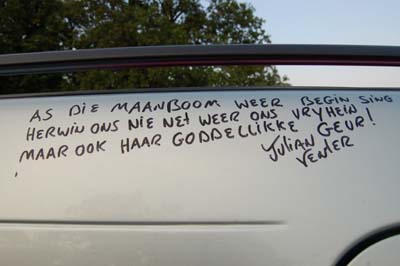 AS DIE MAANBOOM WEER BEGIN SING
HERWIN ONS NIE NET WEER ONS VRYHEID
MAAR OOK HAAR GODDELLIKKE GEUR!
JULIAN
VENTER